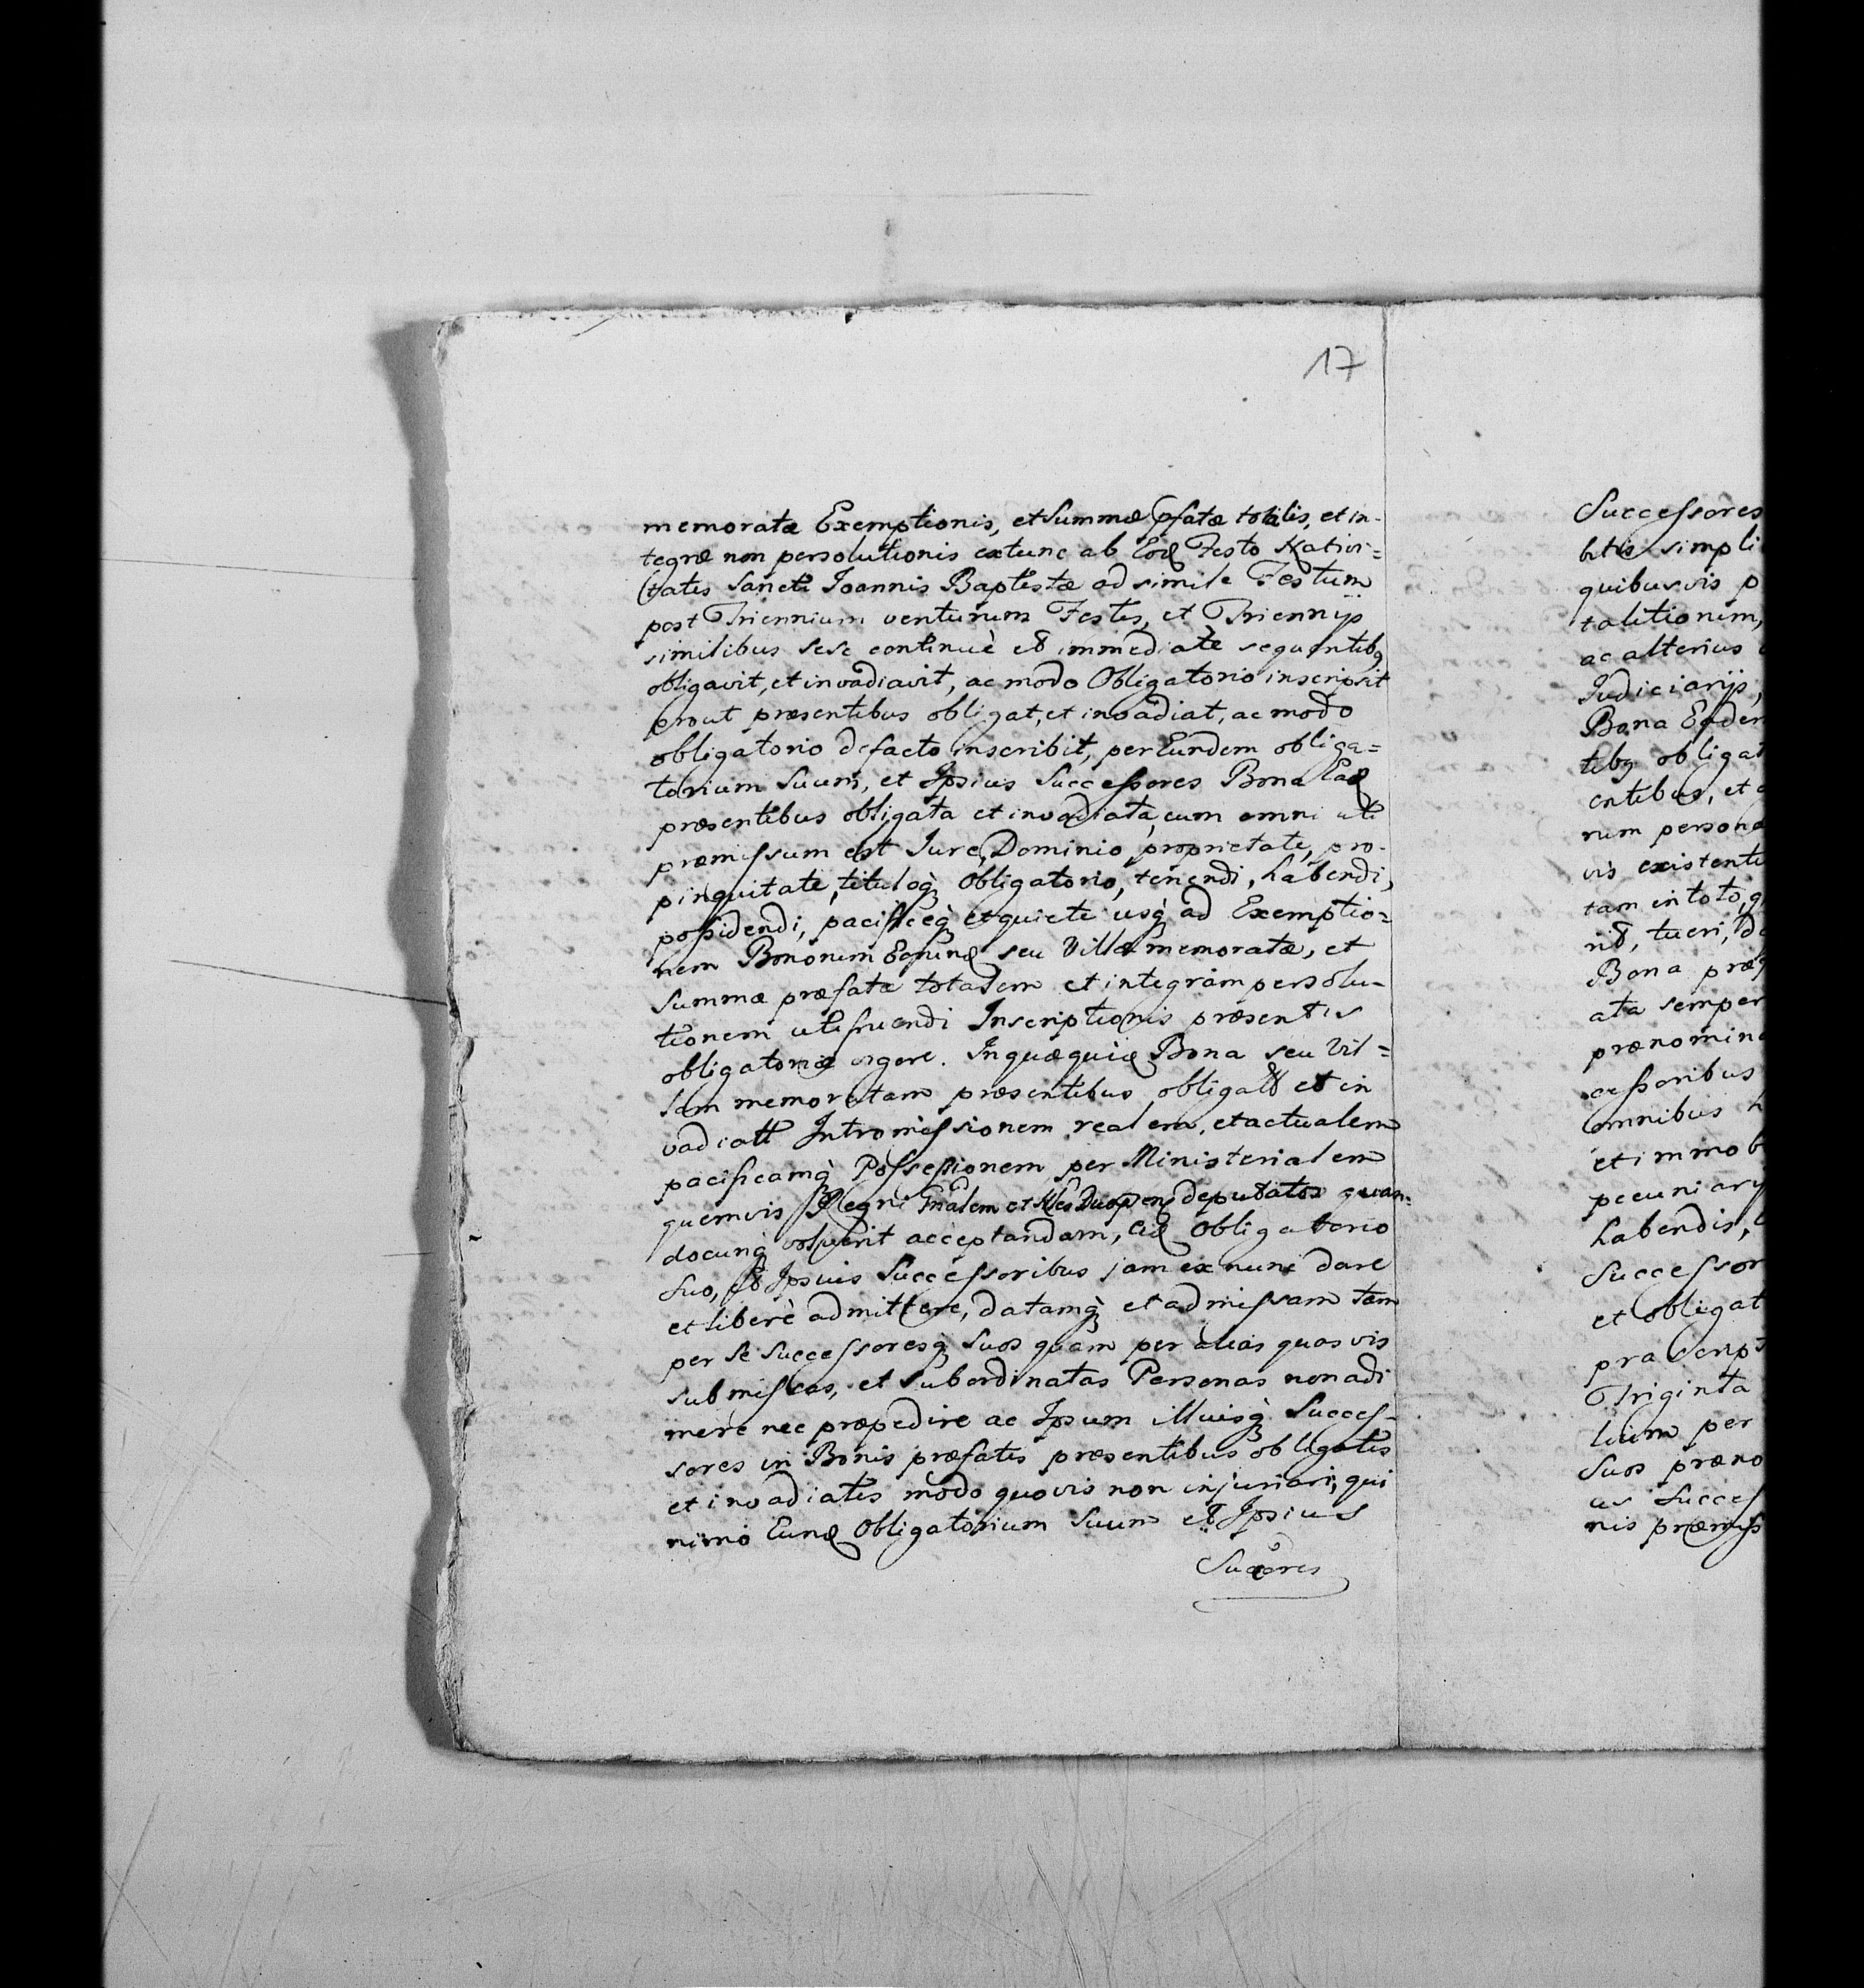 17
memoratæ Exemptionis, et Summæ pfatæ totalis, et in-
tegræ non persolutionis extunc ab Eod Festo Nativi=
tatis Sancti Joannis Baptistæ ad simile Festum
post Triennium venturum Festis, et Triennijs
similibus sese continuè et immediatè sequentibq
obligavit, et invadiavit, ac modo Obligatorio inscripsit
prout præsentibus obligat, et invadiat, ac modo
obligatorio defacto inscribit, per Eundem obliga=
torium Suum, et Ipsius Successores Bona Ead
præsentibus obligata et invadiata, cum omni uti
præmissum est Jure, Dominio, proprietate, pro-
pinquitate, tituloq Obligatorio, tenendi, habendi,
possidendi, pacificèq et quietè usq ad Exemptio=
nem Bonorum seu Villæ memoratæ, et
Summæ præfatæ totalem et integram persolu-
tionem utifruendi Inscriptionis præsentis
obligatoriæ vigore. In quæquid Bona seu Vil=
lam memoratam præsentibus obligatt et in
vadiatt Intromissionem realem, et actualem
pacificamq Possessionem per Ministerialem
quemvis Regni Gnalem et deputatos quan-
docunq voluerit acceptandam, Eid Obligatorio
Suo, et Ipsius Successoribus jam ex nunc dare
et liberè admittere, datamq et admissam tam
per Se Successoresq Suos quàm per alias quasvis
submissas, et subordinatas Personas non adi
mere nec præpedire ac Ipsum illiusq Succes-
sores in Bonis præfatis præsentibus obligatis
et invadiatis modo quovis non injuriari, qui
nimo Eund Obligatorium Suum et Ipsius
Succores
Successores
bitis simpli
quibusvis p
talitionem,
ac alterius
Judiciarijs,
Bona Eadem
tibq obligat
entibus, et
rum persona
vis existenti
tam in toto, q
rit, tueri, de
Bona præ
ata semper
prænomina
cessoribus
omnibus
et immob
pecuniary
habendis,
Successor
et obligat
præscript
Triginta
lium per
Suos præno
us Succes
nis præmiss